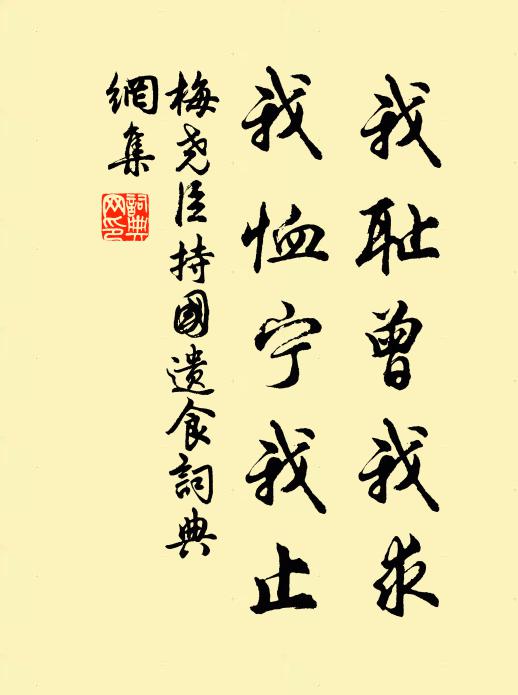 我耻曾我求
我恤宁我止
梅尧臣持國遗食詞典
網集
詞典
网印